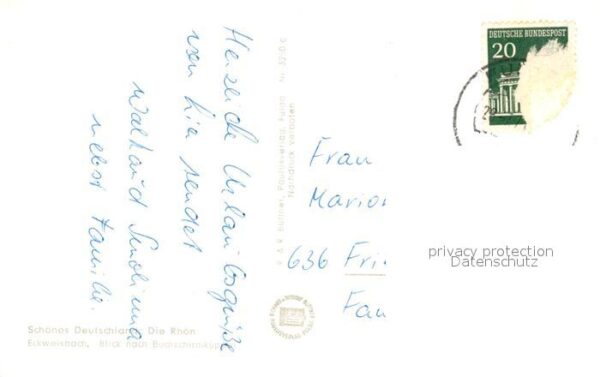 Herzliche Urlaubsgrüße
von hier sendet
nebst Familie.
Schönes Deutschland Die Rhön
Eckweisbach, Blick nach Buchschirmkuppe
Nachdruck verboten
DEUTSCHE BUNDESPOST
20
Frau
Marion
636 Fri
Fau
privacy protection
Datenschutz